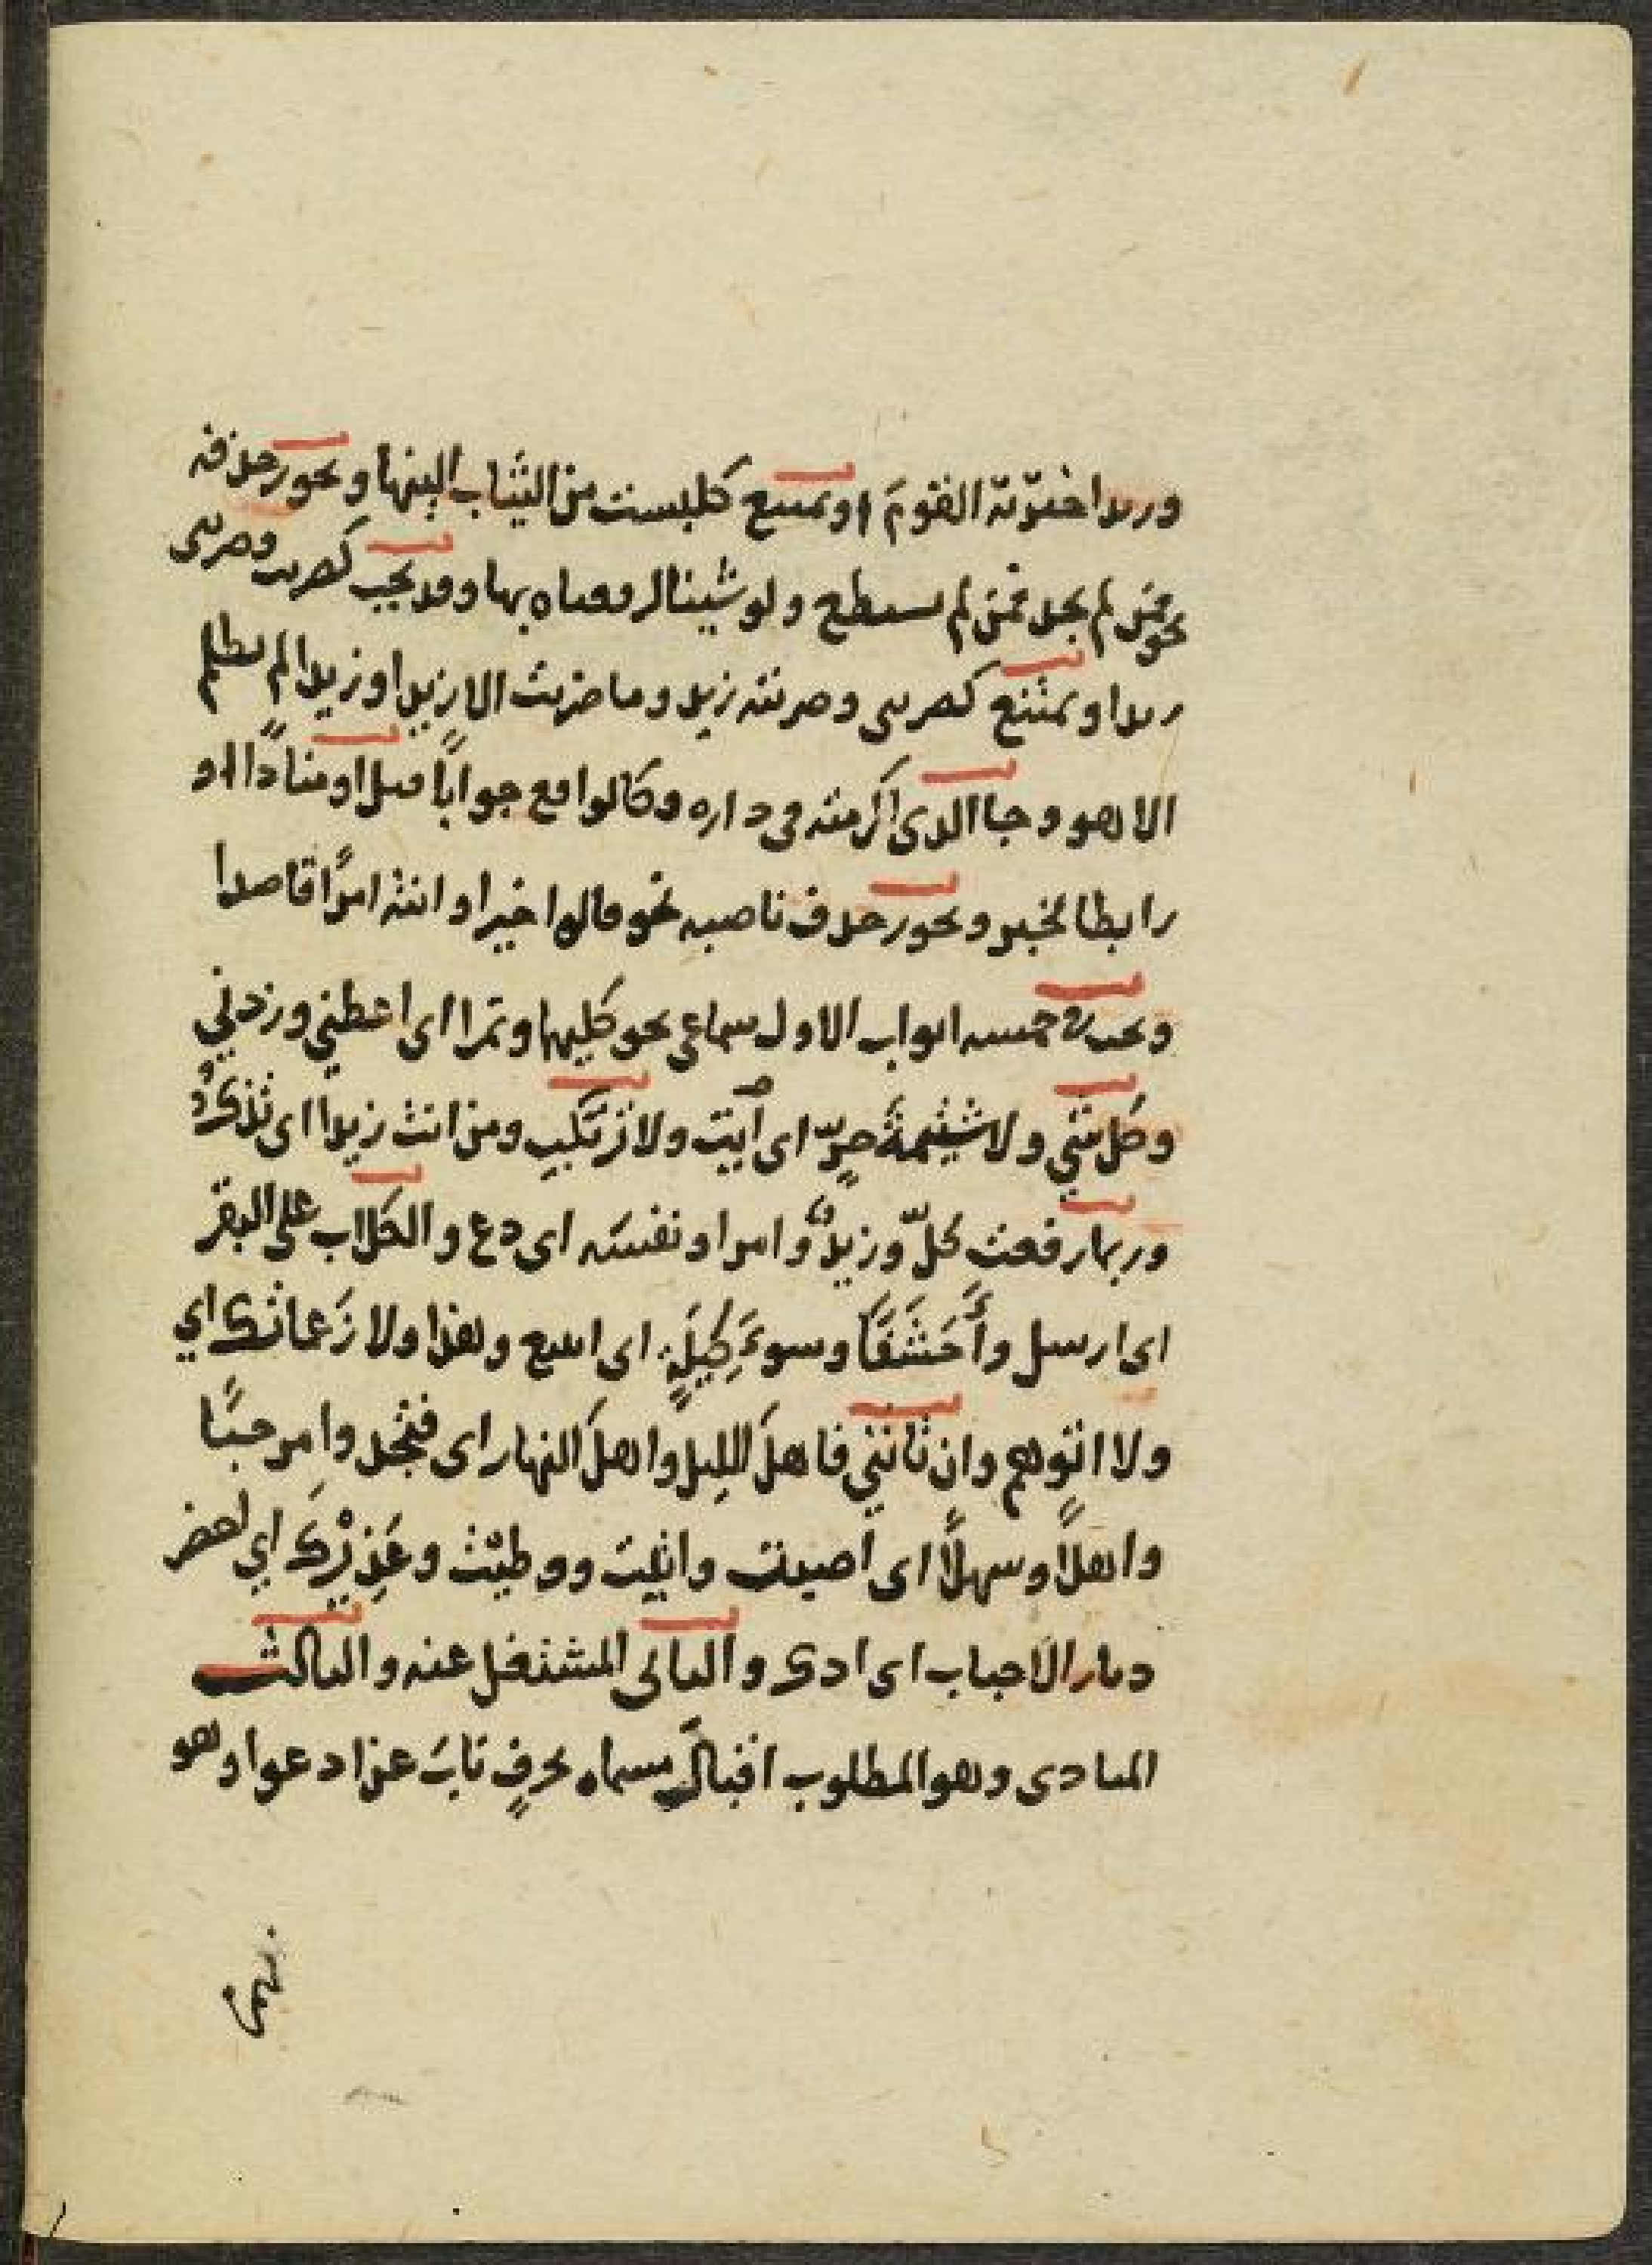 وزيدا اخترته القومَ او يمتنع كلبست من الثياب الينها ويجوز حذفه
نحو فمن لم يجد فمن لم يستطع ولو شينا لرفعناه بها وقد يجب كضربت وضربني
زيدا او يمتنع كضربني وضربته زيد وما ضربت الا زيدا او زيدا لم يظلم
الا هو وجا الذى اكرمته في داره وكالواقع جواباً مثل او منادًا او
رابطا لخبر ويجوز حذف ناصبه نحو قالوا خيرا وانته امرًا قاصدا
ويجب في خمسه ابواب الاول سماعي نحو كليهما وتمرا اى اعطني وزدني
وكل شي ولا شتيمةَ حرٍّ اى آيت ولا ترتكب ومن انت زيدا اى تذكُرُ
وربما رفعت كلّ وزيدٌ وامرا ونفسه اى دع والكلاب على البقر
اى ارسل وأَحَشَفًا وسوءَ كِيلَةٍ اى اتبيع وهذا ولا زَعماتك اي
ولا اتوهم وان تاتني فاهلَ الليل واهلَ النهار اى فتجد وامرحبًا
واهلًا وسهلًا اى اصبت واتيت ووطيت وعَذِيْرَكَ اي احضر
ديار الاحباب اى اذكر والثانى المشتغل عنه والثالث
المنادى وهو المطلوب اقبالُ مسماه بحرفٍ نابَ عن ادعوا وهو